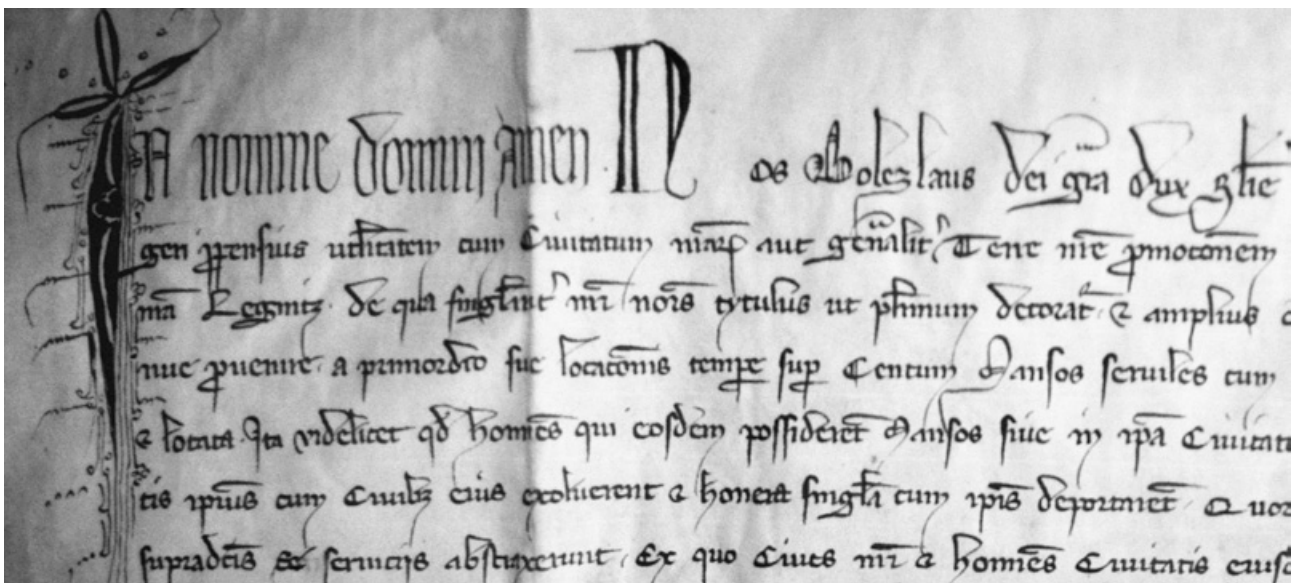 In nomine domini Amen Nos Bolezlaus dei gr̄a dux Slie
gen ꝑpensius vtilitatem cum Ciuitatum nr̄aꝝ aut gen̄alit᷑ Tene
ma Legnitz de qua singl̄arit᷑ nr̄i nōis tytulus ut pl̄imum decorat᷑ ⁊ amplius
nue ꝓuenire a primordio sue locatōnis temꝑe suꝑ Centum Mansos seruiles cum
⁊ locata Ita videlicet qd̄ homīes qui eosdem possiderēt Mansos siue in ip̄a Ciuitate
tis ip̄ius cum Ciuibꝫ eius exoluerent ⁊ honera singl̄a cum ip̄is deportarēt Quor
supradc̄is se seruicijs abstraxerunt Ex quo Ciues nr̄i ⁊ homīes Ciuitatis eiusd